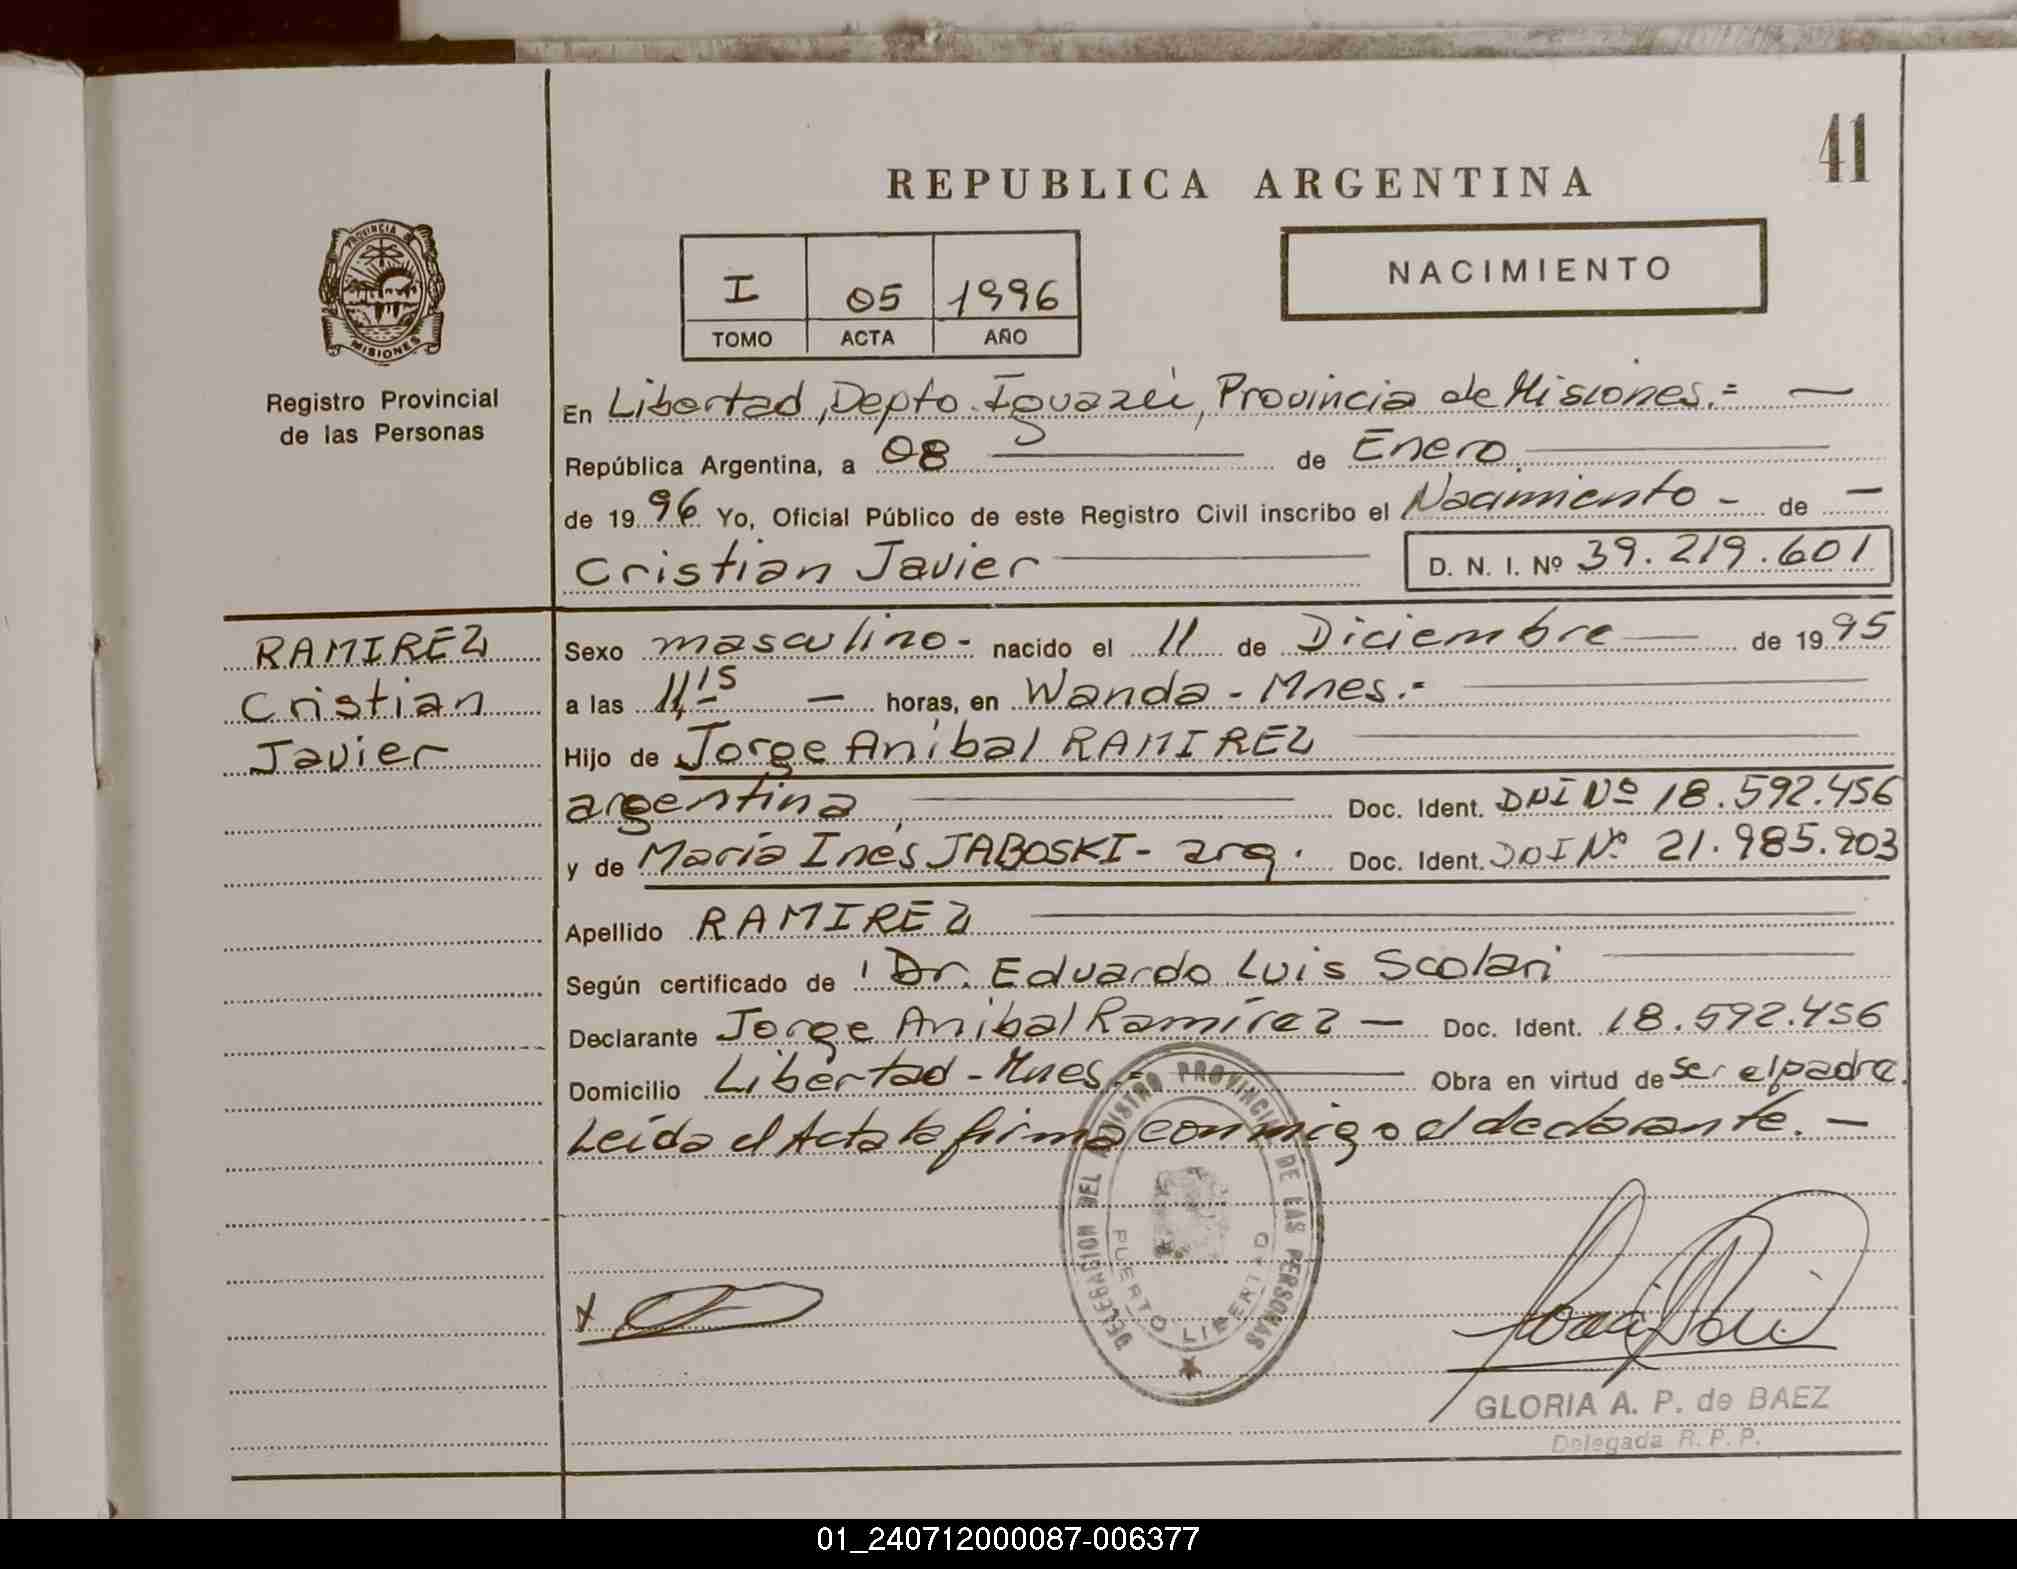 41
REPUBLICA ARGENTINA
NACIMIENTO
I 05 1996
TOMO ACTA AÑO
PROVINCIA DE
MISIONES
Registro Provincial
de las Personas
En Libertad, Depto. Iguazú, Provincia de Misiones.=
República Argentina, a 08 de Enero.
de 1996 Yo, Oficial Público de este Registro Civil inscribo el Nacimiento - de
Cristian Javier D. N. I. Nº 39.219.601
RAMIREZ
Cristian
Javier
Sexo masculino - nacido el 11 de Diciembre de 1995
a las 11,15 horas, en Wanda - Mnes.-
Hijo de Jorge Aníbal RAMIREZ
argentina, Doc. Ident. DNI Nº 18.592.456
y de María Inés JABOSKI - arg. Doc. Ident. DNI Nº 21.985.903
Apellido RAMIREZ
Según certificado de Dr. Eduardo Luis Scolari
Declarante Jorge Aníbal Ramírez - Doc. Ident. 18.592.456
Domicilio Libertad - Mnes.- Obra en virtud de ser el padre.
Leída el Acta la firma conmigo el declarante. -
DELEGACION DEL REGISTRO PROVINCIAL DE LAS PERSONAS
PUERTO LIBERTAD
GLORIA A. P. de BAEZ
Delegada R. P. P.
01_240712000087-006377